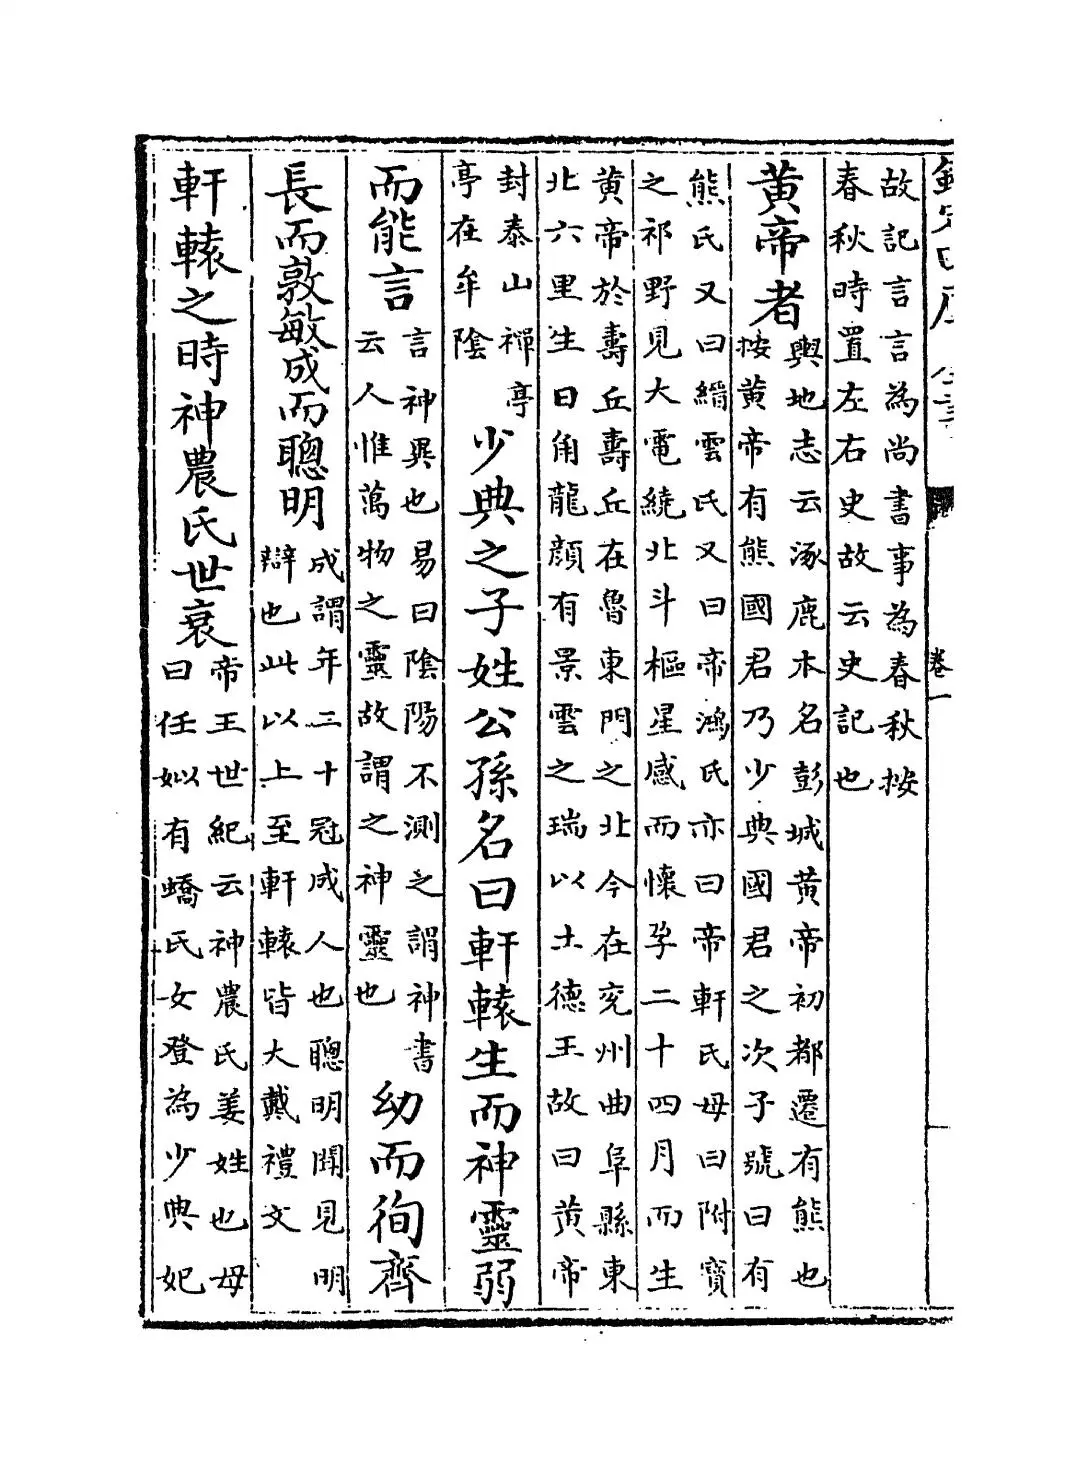 卷一
故記言言為尚書事為春秋按
春秋時置左右史故云史記也
黃帝者
輿地志云涿鹿本名彭城黃帝初都遷有熊也
按黃帝有熊國君乃少典國君之次子號曰有
熊氏又曰縉雲氏又曰帝鴻氏亦曰帝軒氏母曰附寶
之祁野見大電繞北斗樞星感而懷孕二十四月而生
黃帝於壽丘壽丘在魯東門之北今在兗州曲阜縣東
北六里生日角龍顏有景雲之瑞以土德王故曰黃帝
封泰山禪亭
亭在牟陰
少典之子姓公孫名曰軒轅生而神靈弱
而能言
言神異也易曰陰陽不測之謂神書
云人惟萬物之靈故謂之神靈也
幼而徇齊
長而敦敏成而聰明
成謂年二十冠成人也聰明聞見明
辯也此以上至軒轅皆大戴禮文
軒轅之時神農氏世衰
帝王世紀云神農氏姜姓也母
曰任姒有蟜氏女登為少典妃